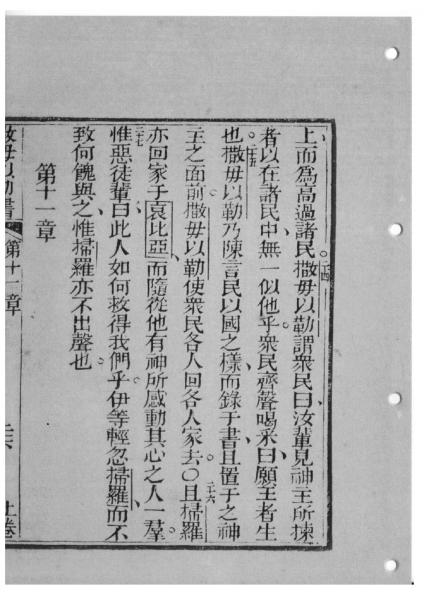 上而為高過諸民撒毋以勒謂衆民曰汝輩見神主所揀
者以在諸民中無一似他乎衆民齊聲喝采曰願王者生
也撒毋以勒乃陳言民以國之樣而錄于書且置于之神
主之面前撒毋以勒使衆民各人回各人家去〇且掃羅
亦回家子哀比亞而隨從他有神所感動其心之人一羣
惟惡徒輩曰此人如何救得我們乎伊等輕忽掃羅而不
致何餽與之惟掃羅亦不出聲也
第十一章
撒毋以勒書 第十一章 上卷